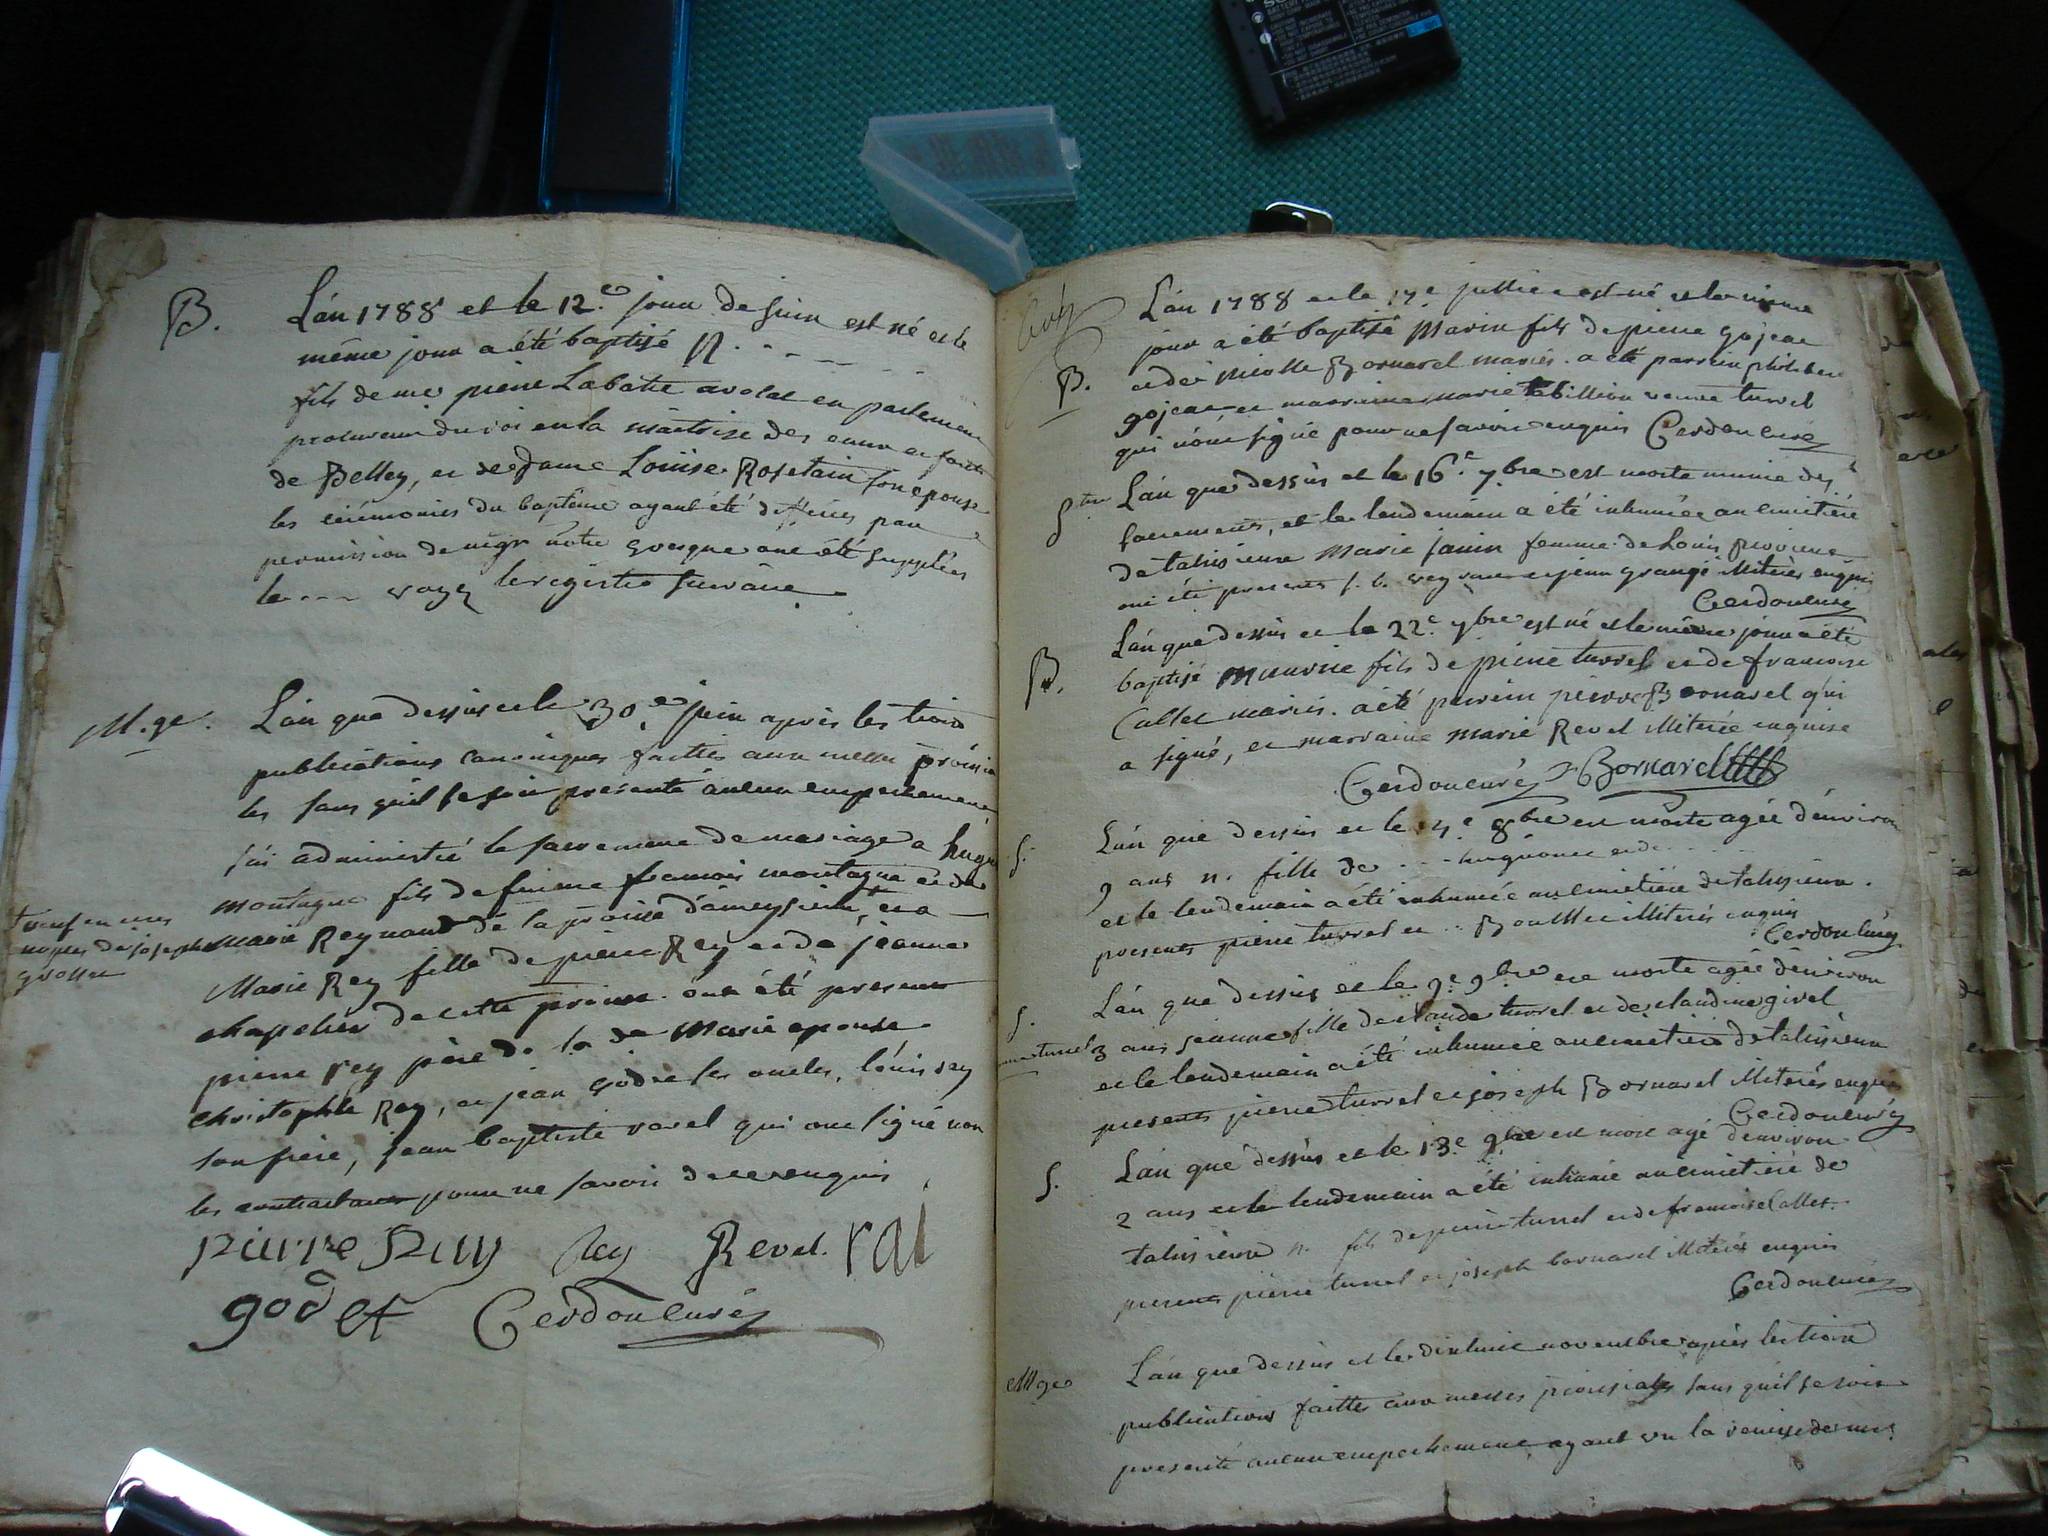 B.
L'an 1788 et le 12.e jour de juin est né et le
même jour a été baptisé N. - - - -
fils de me pierre Labatie avocat en parlement
procureur du roi en la maitrise des eaux et forêts
de Belley, et de dame Louise Rosetain son epouse
les cérémonies du baptême ayant été differées par
permission de mgr notre evesque ont été supplées
le --- voyez le registre suivant.
M.ge.
L'an que dessus et le 30.e juin après les trois
publications canoniques faittes aux messes proissia
les sans qu'il se soit presenté aucun empechement
j'ai administré le sacrement de mariage a hugue
montagne fils de françois montagne et de
marie Reynaud de la proisse d'ameysieu, et a
veuf en
noces de joseph
Marie Rey fille de pierre Rey et de jeanne
chapelier de cette proisse. ont été presents
pierre rey père de la de Marie epouse
christophle Rey, et jean godet les oncles, louis rey
son frère, jean baptiste ravel qui ont signé non
les contractants pour ne savoir de ce enquis.
pierre Ray Rey Revel. rai
godet Cerdon curé
L'an 1788 et le 17e juillet est né et le même
jour a été baptisé Marin fils de pierre gojeat
B.
et de nicolle Bornarel mariés. a été parrein philibert
gojeat et marraine marie Tabillion veuve turrel
qui n'ont signé pour ne savoir enquis Cerdon curé
S.ture
L'an que dessus et le 16.e 7bre est morte munie des
sacrements, et le lendemain a été inhumée au cimetière
de talissieux Marie Janin femme de Louis
ont été presents et jean grangé illiterés enquis
Cerdon curé
B.
L'an que dessus et le 22.e 7bre est né et le même jour a été
baptisé Maurice fils de pierre turrel et de francoise
Callet mariés. a été parrein pierre Bornarel qui
a signé, et marraine marie Revel illiterée enquise
Cerdon curé Bornarel
S.
L'an que dessus et le 4.e 8bre est morte agée d'environ
9 ans n. fille de - - - et de - - -
et le lendemain a été inhumée au cimetière de talissieux.
presents pierre turrel et .. Boullet illiterés enquis
Cerdon curé
S.
L'an que dessus et le 9.e 9bre est morte agée d'environ
turrel
3 ans jeanne fille de claude turrel et de claudine givel
et le lendemain a été inhumée au cimetière de talissieux
presents pierre turrel et joseph Bornarel illiterés enquis
Cerdon curé
S.
L'an que dessus et le 13.e 9bre est mort agé d'environ
2 ans et le lendemain a été inhumé au cimetière de
talissieux n. fils de pierre turrel et de francoise Callet.
presents pierre turrel et joseph bornarel illiterés enquis
Cerdon curé
M.ge
L'an que dessus et le dixhuit novembre après les trois
publications faittes aux messes proissiales sans qu'il se soit
presenté aucun empechement, ayant vu la remise de mr.